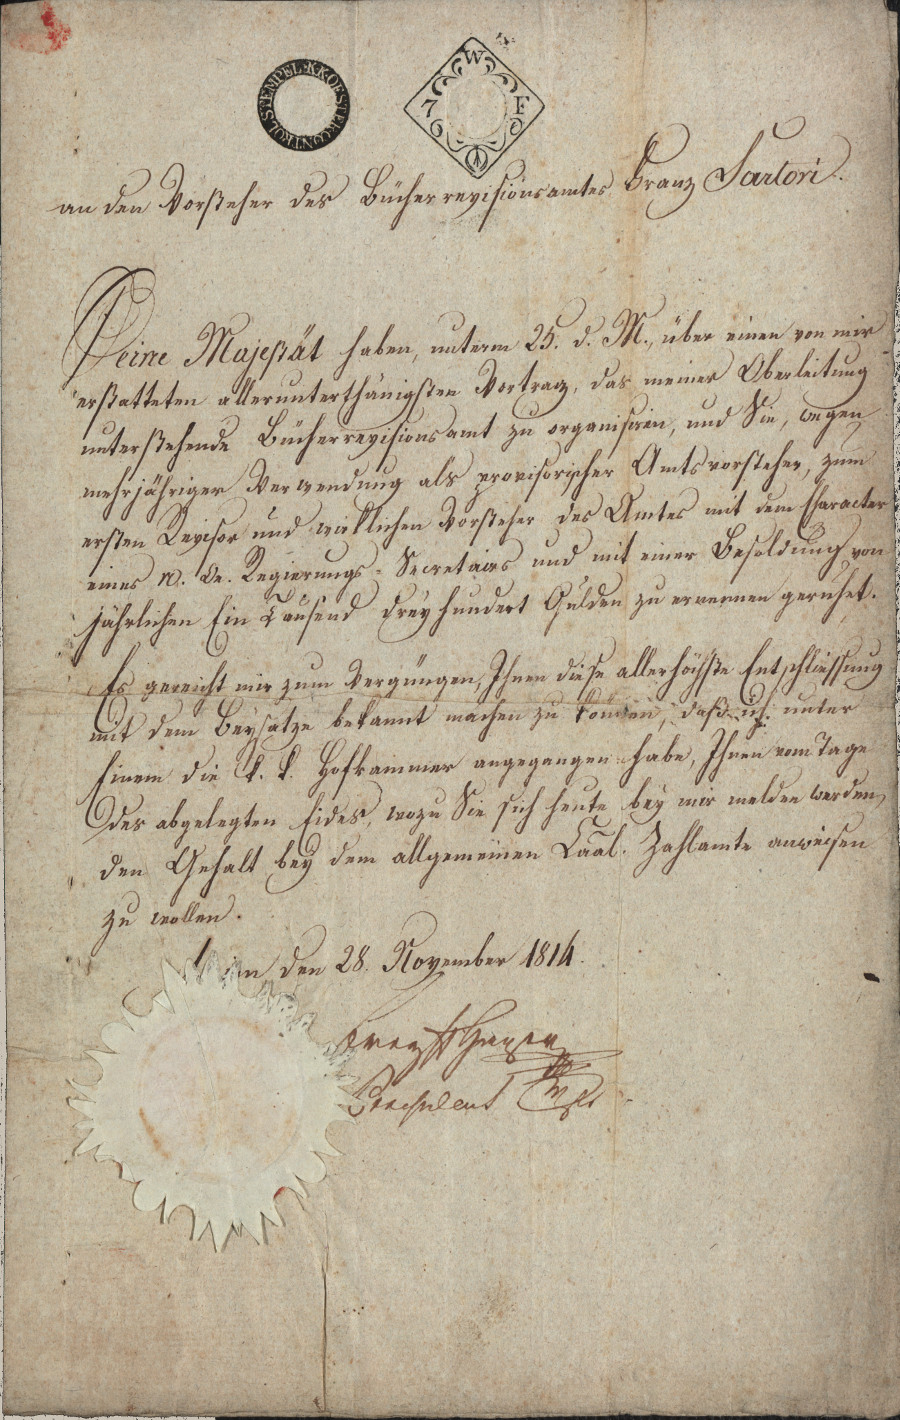 CONTROL STEMPEL K.K. OESTER.
W
7 F
6
1
an den Vorsteher des Bücherrevisionsamtes Franz Sartori.
Seine Majestät haben, unterm 25. d. M., über einen von mir
erstatteten allerunterthänigsten Vortrag, das meiner Oberleitung
unterstehende Bücherrevisionsamt zu organisiren, und Sie, wegen
mehrjähriger Verwendung als provisorischer Amtsvorsteher, zum
ersten Revisor und wirklichen Vorsteher des Amtes mit dem Character
eines n. Oe. Regierungs-Secretairs und mit einer Besoldung von
jährlichen Ein Tausend dreyhundert Gulden zu ernennen geruhet.
Es gereicht mir zum Vergnügen, Ihnen diese allerhöchste Entschliessung
mit dem Beysatze bekannt machen zu können, daß ich unter
Einem die k. k. Hofkammer angegangen habe, Ihnen vom Tage
des abgelegten Eides, wozu Sie sich heute bey mir melden werden,
den Gehalt bey dem allgemeinen Caal. Zahlamte anweisen
zu wollen.
Wien den 28. November 1814.